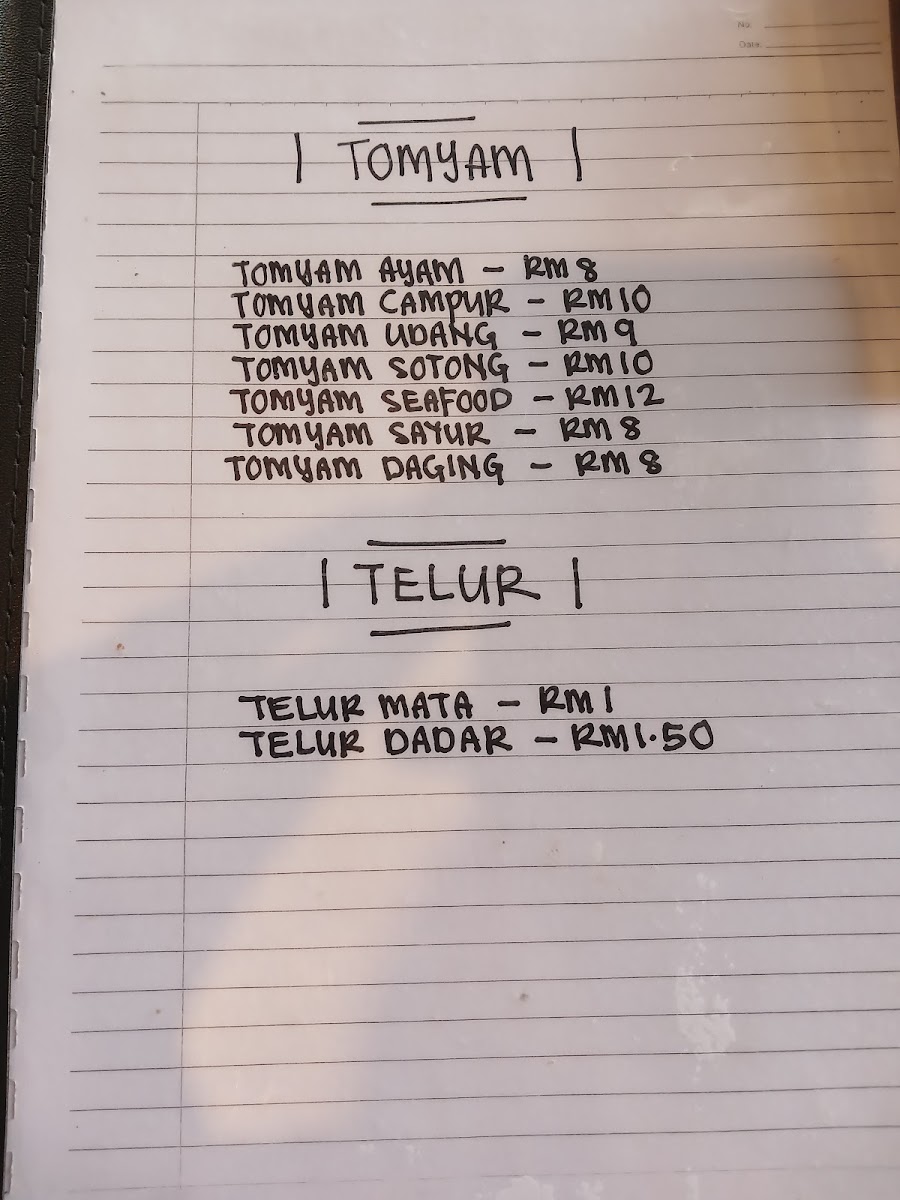 No.
Date.
| TOMYAM |
TOMYAM AYAM - RM 8
TOMYAM CAMPUR - RM 10
TOMYAM UDANG - RM 9
TOMYAM SOTONG - RM 10
TOMYAM SEAFOOD - RM 12
TOMYAM SAYUR - RM 8
TOMYAM DAGING - RM 8
| TELUR |
TELUR MATA - RM 1
TELUR DADAR - RM 1.50